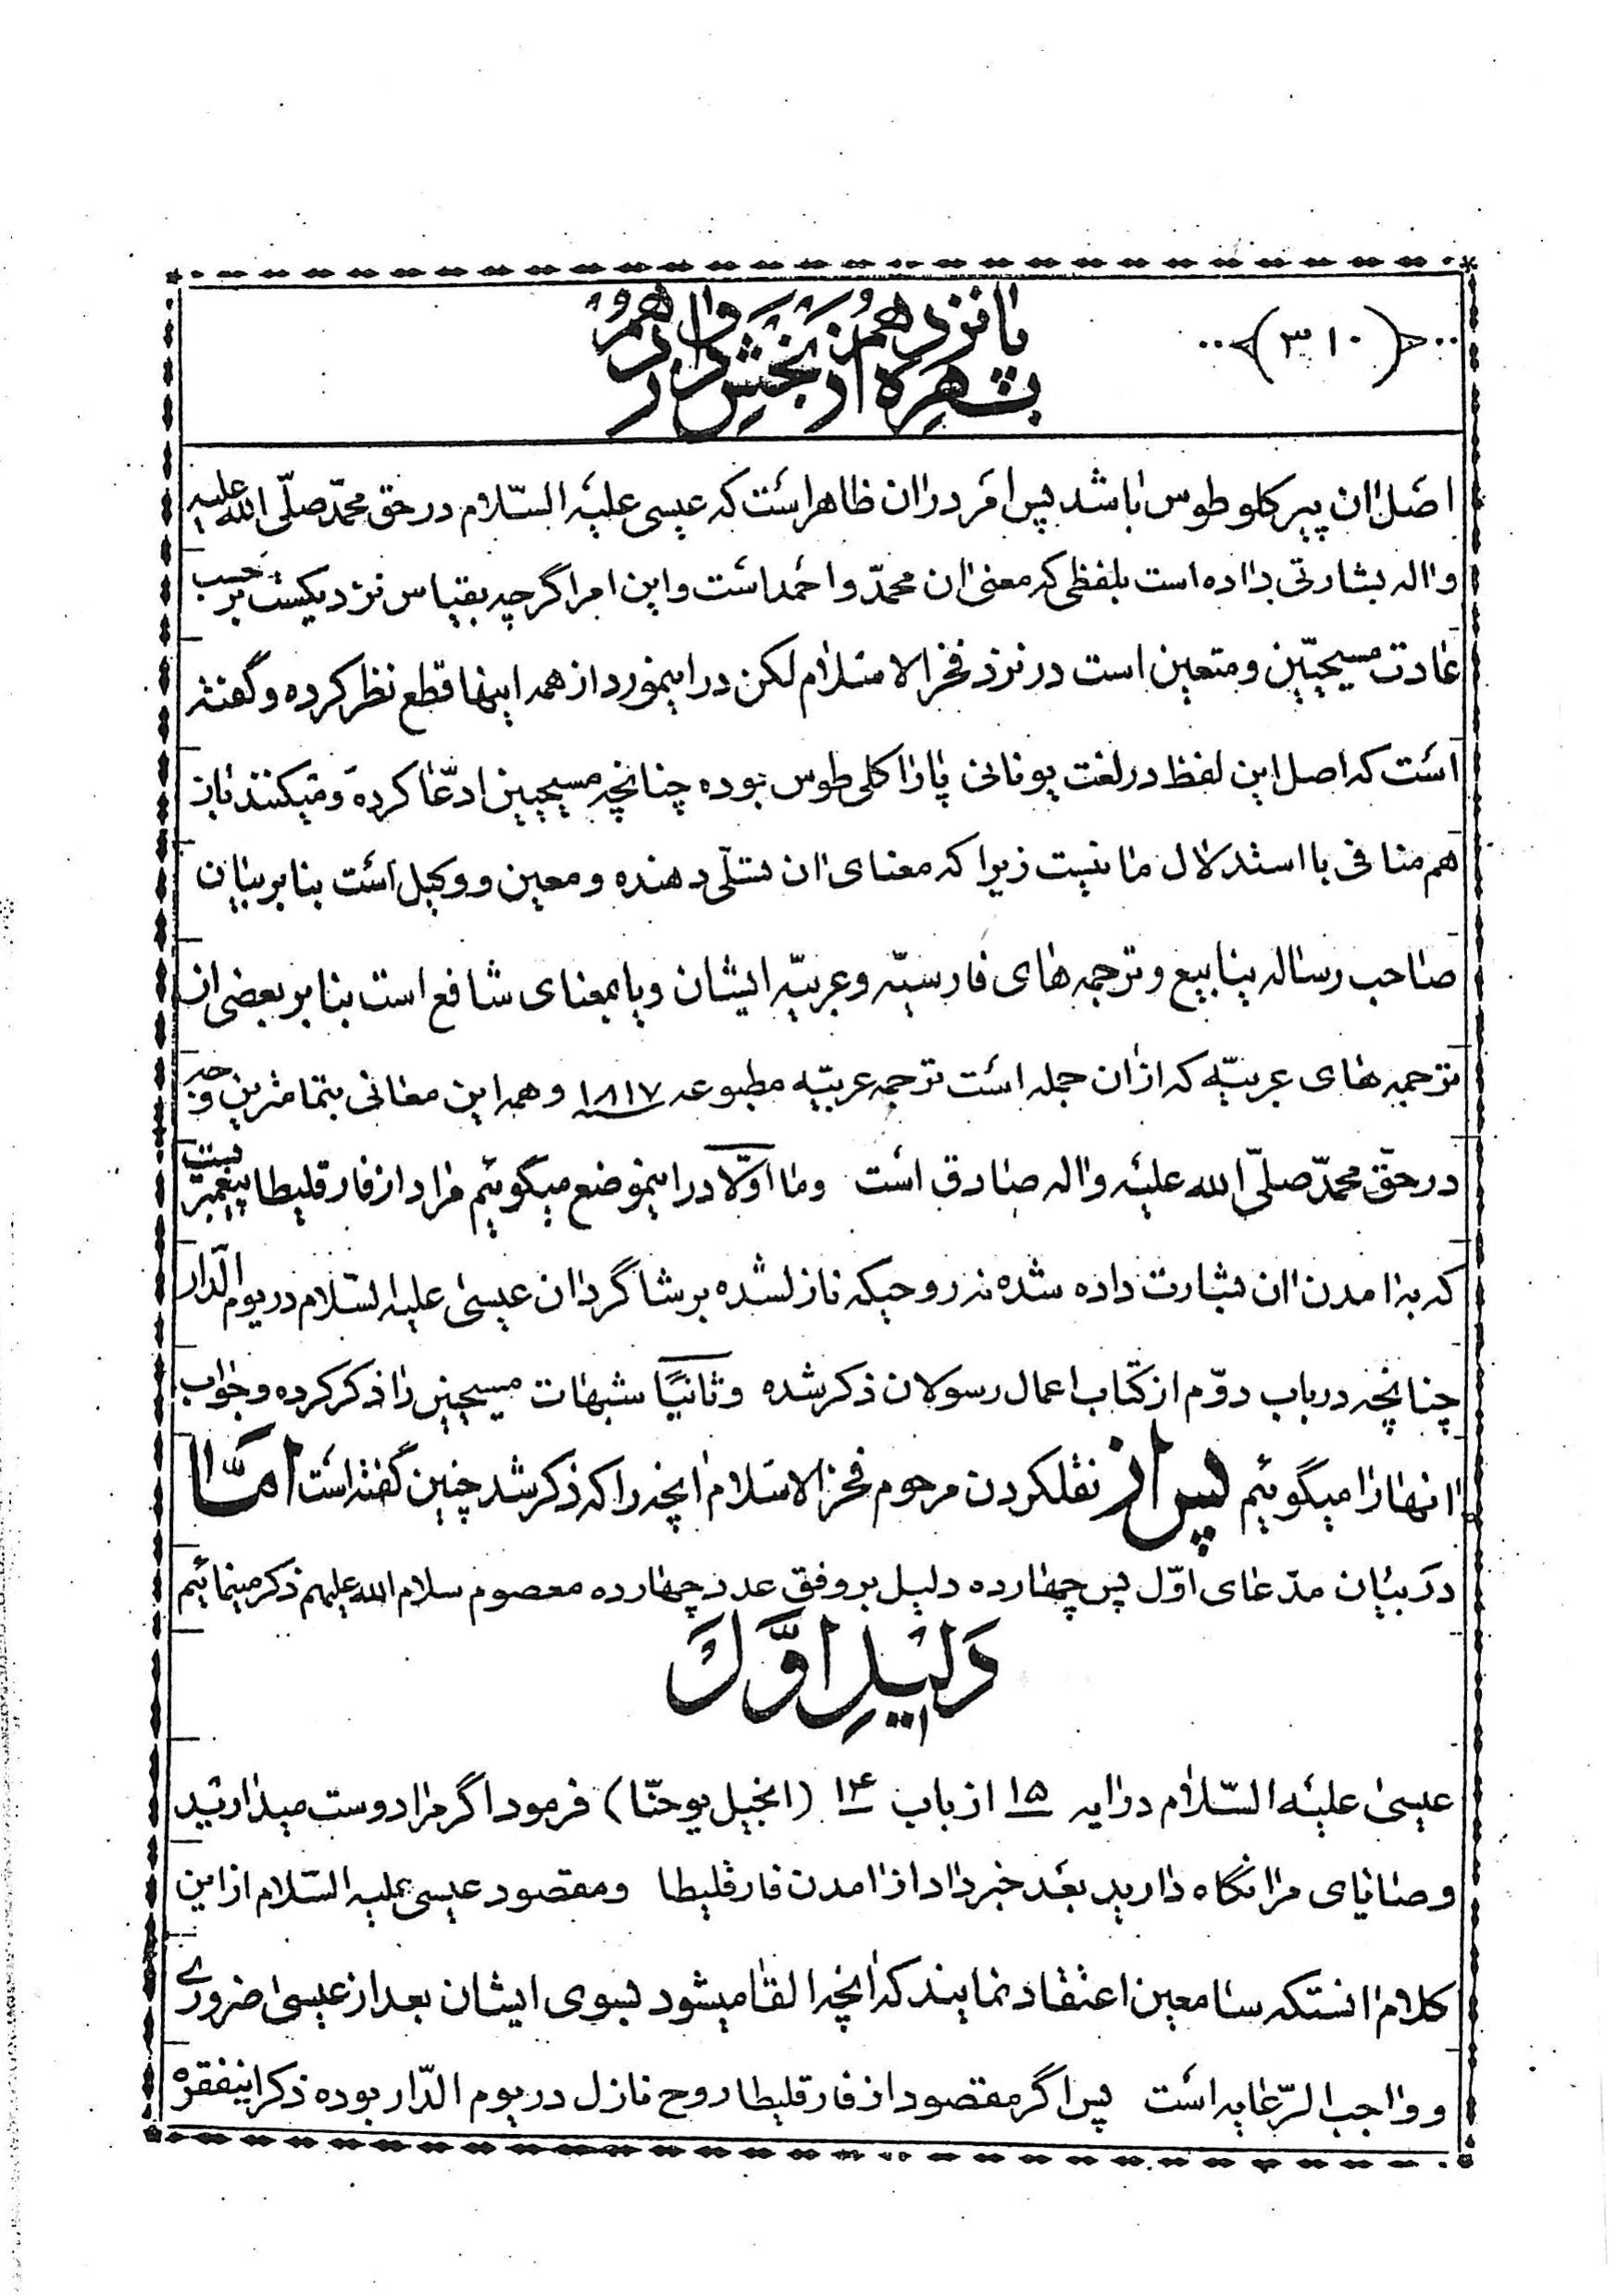 (٣١٠)
پانزدهم از بخش دوازدهم
شهره در
اصل ان پیرکلوطوس باشد پس امر در ان ظاهر است که عیسی علیه السّلام در حق محمّد صلّی الله علیه
واله بشارتی داده است بلفظی که معنی ان محمّد و احمد است و این امر اگرچه بقیاس نزدیکست بر حسب
عادت مسیحیّین و متعین است در نزد فخر الاسلام لکن در اینمورد از همه اینها قطع نظر کرده و گفته
است که اصل این لفظ در لغت یونانی پاراکلی طوس بوده چنانچه مسیحیین ادّعا کرده و میکنند باز
هم منافی با استدلال ما نیست زیرا که معنای ان تسلّی دهنده و معین و وکیل است بنا بر بیان
صاحب رساله ینابیع و ترجمه های فارسیّه و عربیّه ایشان و یا بمعنای شافع است بنا بر بعضی از
ترجمه های عربیّه که از ان جمله است ترجمه عربیّه مطبوعه ١٨١٧ و همه این معانی بتمامترین وجه
در حق محمّد صلّی الله علیه واله صادق است وما اوّلا در اینموضع میگوئیم مراد از فارقلیطا پیغمبریست
که به امدن ان بشارت داده شده نه روحیکه نازلشده بر شاگردان عیسی علیه السّلام در یوم الدّار
چنانچه در باب دوّم از کتاب اعمال رسولان ذکر شده و ثانیًا شبهات مسیحیین را ذکر کرده و جواب
انها را میگوئیم پس از نقلکردن مرحوم فخر الاسلام انچه را که ذکر شد چنین گفته است امّا
در بیان مدّعای اوّل پس چهارده دلیل بر وفق عدد چهارده معصوم سلام الله علیهم ذکر مینمائیم
دلیل اوّل
عیسی علیه السّلام در ایه ١٥ از باب ١۴ (انجیل یوحنّا) فرمود اگر مرا دوست میدارید
وصایای مرا نگاه دارید بعد خبر داد از امدن فارقلیطا ومقصود عیسی علیه السّلام از این
کلام انستکه سامعین اعتقاد نمایند که انچه القا میشود بسوی ایشان بعد از عیسی ضروری
و واجب الرّعایه است پس اگر مقصود از فارقلیطا روح نازل در یوم الدّار بوده ذکر اینفقره